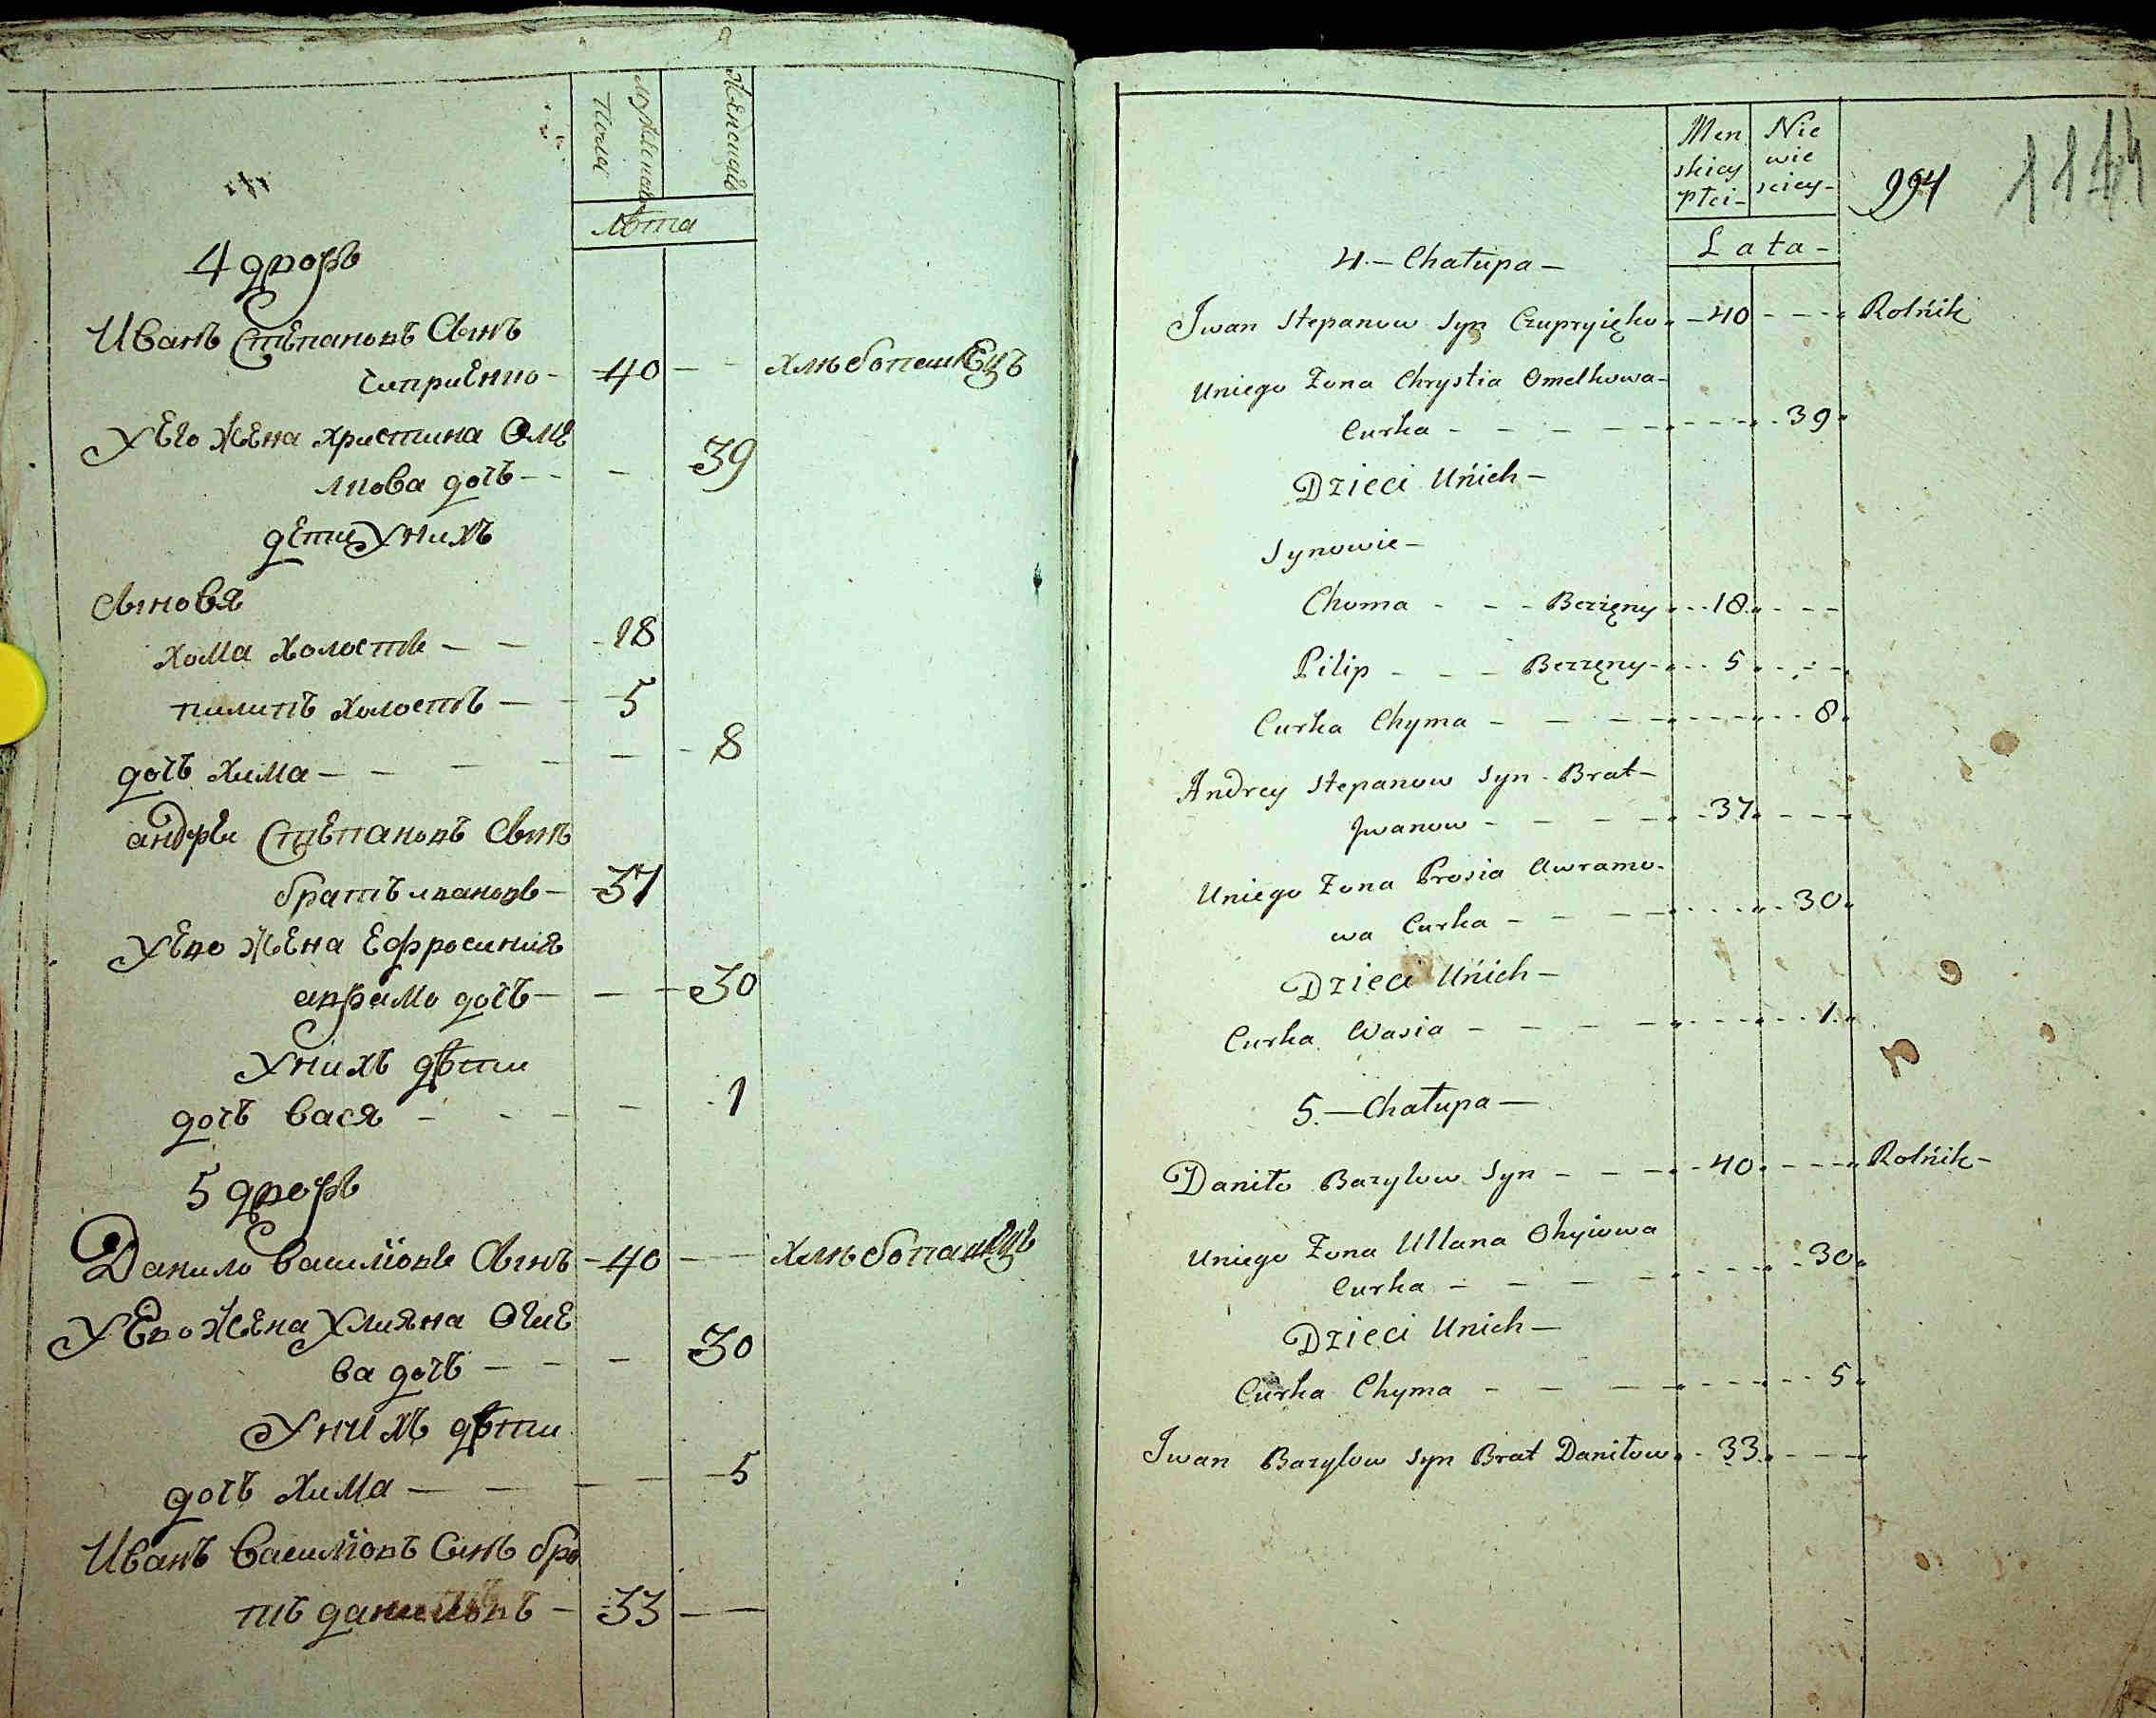 Мужеска
Пола
Женскаго
Лѣта
4 дворъ
Иванъ Степановъ Сынъ
Чиприенко - 40 - - хлебопашецъ
У Его Жена Христина Оме
лкова дочъ - - - 39
дети У нихъ
Сыновя
Хома Холостъ - - 18
пилипъ Холостъ - - 5
дочъ Хима - - - - - 8
андреи Степановъ Сынъ
братъ ивановъ - 37
У Его Жена Ефросиния
аврамо дочъ - - - 30
У нихъ дѣти
дочъ Вася - - - - 1
5 дворъ
Данило Василїовъ Сынъ - 40 - - хлебопашецъ
У Его Жена Улияна Огие
ва дочъ - - - 30
У нихъ дѣти
дочъ Хима - - - - 5
Иванъ Василїовъ Синъ бра
тъ даниловъ - 33 - -
Men
skiey
płci -
Nie
wie
sciey -
994
1114
Lata -
4. - Chałupa -
Jwan Stepanow Syn Czupryięko - 40 - - - Rolńik
Uniego Żona Chrystia Omelkowa -
Curka - - - - - - - 39
Dzieci Uńich -
Synowie -
Choma - - - Bezżęny - - 18 - - -
Pilip - - - Bezżęny - - 5 - - -
Curka Chyma - - - - - - - 8
Andrey Stepanow Syn - Brat -
Jwanow - - - - - 37 - - -
Uniego Żona Prosia Awramo -
wa Curka - - - - - - 30
Dzieci Uńich -
Curka Wasia - - - - - - 1.
5. - Chałupa -
Daniło Bazylow Syn - - - - 40 - - - Rolńik -
Uniego Żona Ullana Ohyiowa
Curka - - - - - - 30
Dzieci Unich -
Curka Chyma - - - - - - 5
Jwan Bazylow Syn Brat Daniłow - 33 - - -